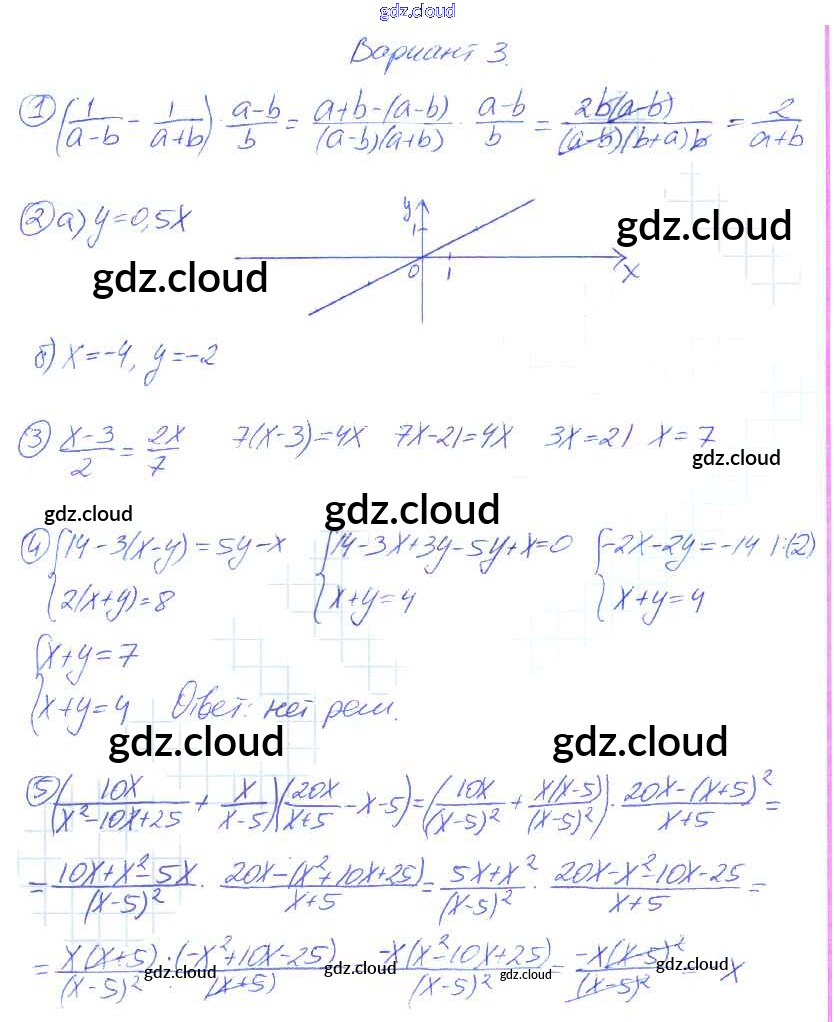 gdz.cloud
Вариант 3.
① (1/(a-b) - 1/(a+b)) · (a-b)/b = (a+b-(a-b))/((a-b)(a+b)) · (a-b)/b = 2b(a-b)/((a-b)(b+a)b) = 2/(a+b)
② а) y=0,5x
y
1
0
1
x
gdz.cloud
gdz.cloud
б) x=-4, y=-2
③ (x-3)/2 = 2x/7 7(x-3)=4x 7x-21=4x 3x=21 x=7
gdz.cloud
gdz.cloud
gdz.cloud
④ {14-3(x-y)=5y-x {14-3x+3y-5y+x=0 {-2x-2y=-14 |:(2)
{2(x+y)=8 {x+y=4 {x+y=4
{x+y=7
{x+y=4 Ответ: нет реш.
gdz.cloud
gdz.cloud
⑤ (10x/(x²-10x+25) + x/(x-5))(20x/(x+5) -x-5)=(10x/(x-5)² + x(x-5)/(x-5)²) · (20x-(x+5)²)/(x+5) =
= (10x+x²-5x)/(x-5)² · (20x-(x²+10x+25))/(x+5) = (5x+x²)/(x-5)² · (20x-x²-10x-25)/(x+5) =
= x(x+5)·(-x²+10x-25)/((x-5)²(x+5)) = -x(x²-10x+25)/(x-5)² = -x(x-5)²/(x-5)² = -x
gdz.cloud
gdz.cloud
gdz.cloud
gdz.cloud